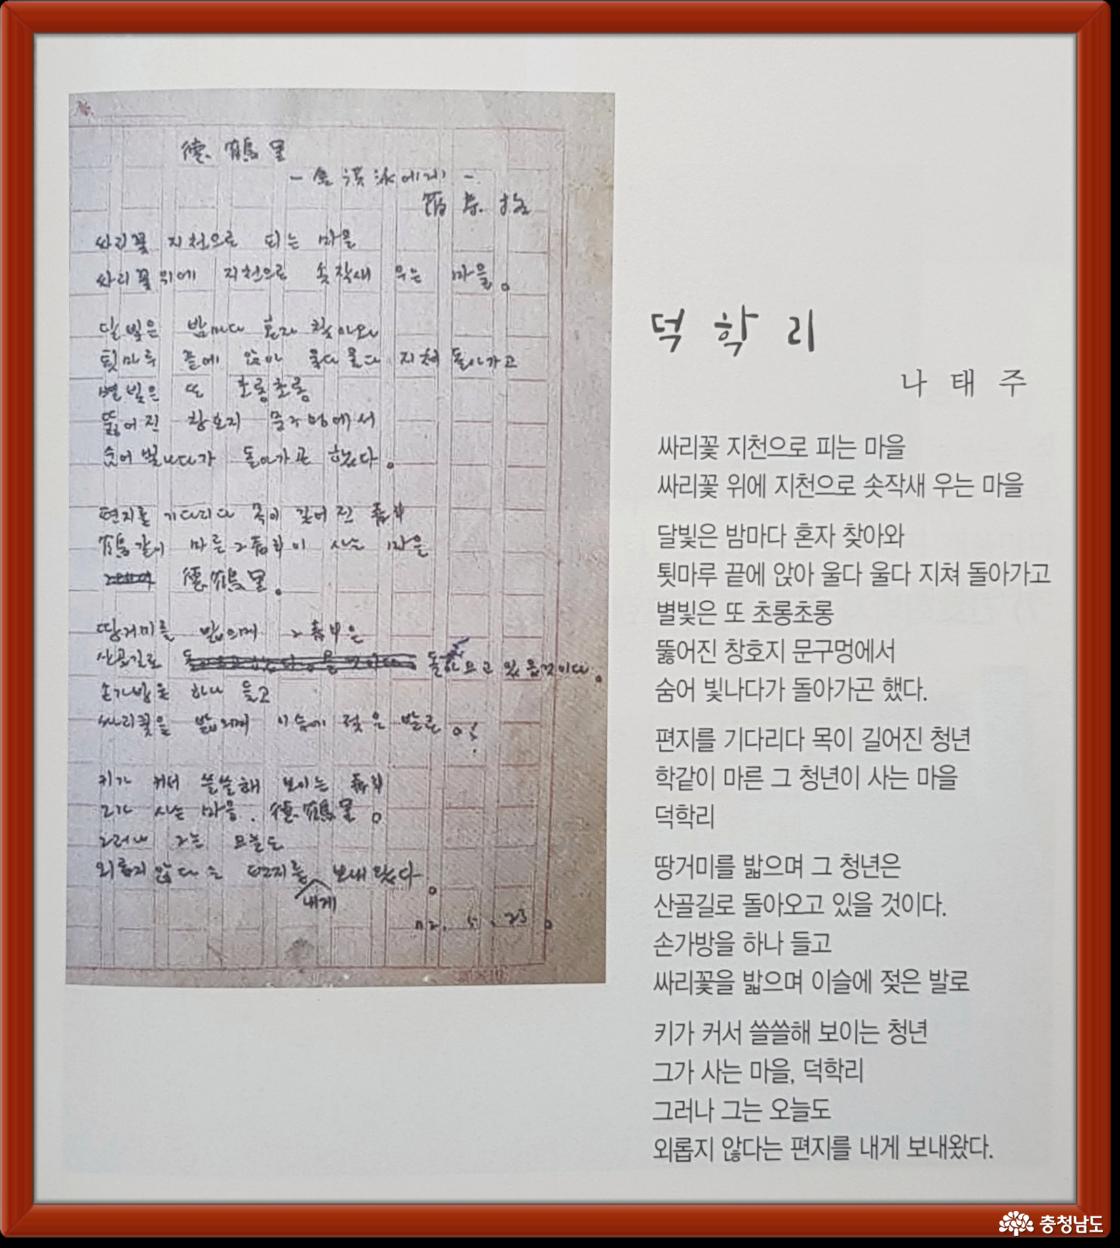 德鶴里
싸리꽃 지천으로 피는 마을
싸리꽃 위에 지천으로 솟작새 우는 마을。
달빛은 밤마다 혼자 찾아와
툇마루 끝에 앉아 울다 울다 지쳐 돌아가고
별빛은 또 초롱초롱
뚫어진 창호지 문구멍에서
숨어 빛나다가 돌아가곤 했다。
편지를 기다리다 목이 길어진 靑年
鶴같이 마른 그 靑年이 사는 마을
德鶴里。
땅거미를 밟으며 그 靑年은
산골길로 돌아오고 있을 것이다。
손가방을 하나 들고
싸리꽃을 밟으며 이슬에 젖은 발로。
키가 커서 쓸쓸해 보이는 靑年
그가 사는 마을, 德鶴里。
그러나 그는 오늘도
외롭지 않다는 편지를 내게 보내왔다。
72. 5. 23。
덕학리
나태주
싸리꽃 지천으로 피는 마을
싸리꽃 위에 지천으로 솟작새 우는 마을
달빛은 밤마다 혼자 찾아와
툇마루 끝에 앉아 울다 울다 지쳐 돌아가고
별빛은 또 초롱초롱
뚫어진 창호지 문구멍에서
숨어 빛나다가 돌아가곤 했다.
편지를 기다리다 목이 길어진 청년
학같이 마른 그 청년이 사는 마을
덕학리
땅거미를 밟으며 그 청년은
산골길로 돌아오고 있을 것이다.
손가방을 하나 들고
싸리꽃을 밟으며 이슬에 젖은 발로
키가 커서 쓸쓸해 보이는 청년
그가 사는 마을, 덕학리
그러나 그는 오늘도
외롭지 않다는 편지를 내게 보내왔다.
충청남도